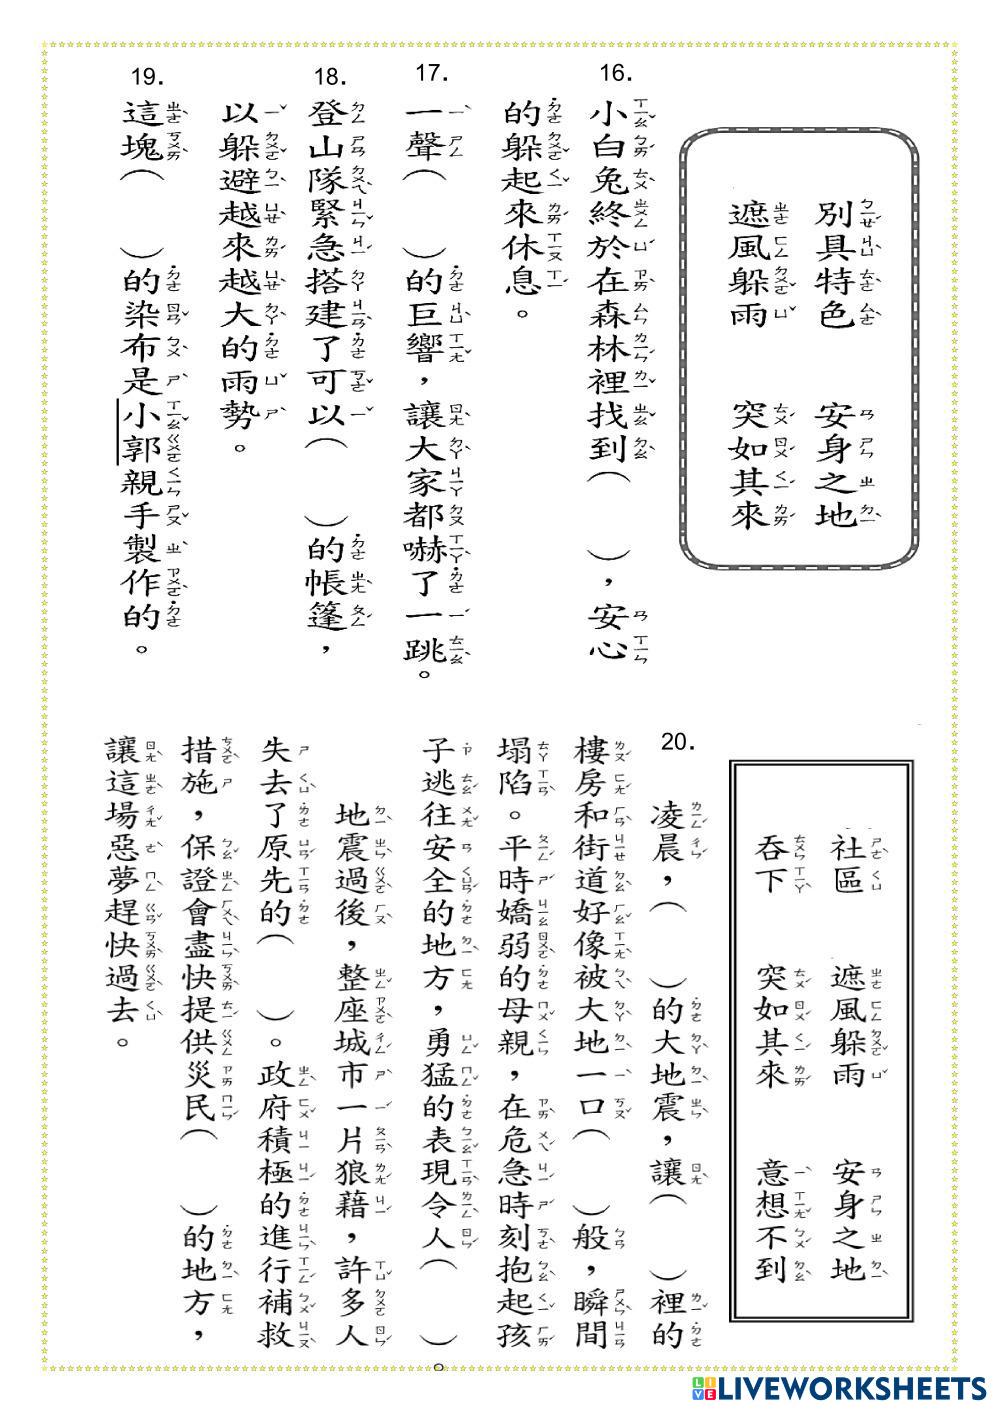 別具特色 安身之地
遮風躲雨 突如其來
16.
小白兔終於在森林裡找到( ),安心
的躲起來休息。
17.
一聲( )的巨響,讓大家都嚇了一跳。
18.
登山隊緊急搭建了可以( )的帳篷,
以躲避越來越大的雨勢。
19.
這塊( )的染布是小郭親手製作的。
社區 遮風躲雨 安身之地
吞下 突如其來 意想不到
20.
凌晨,( )的大地震,讓( )裡的
樓房和街道好像被大地一口( )般,瞬間
塌陷。平時嬌弱的母親,在危急時刻抱起孩
子逃往安全的地方,勇猛的表現令人( )。
地震過後,整座城市一片狼藉,許多人
失去了原先的( )。政府積極的進行補救
措施,保證會盡快提供災民( )的地方,
讓這場惡夢趕快過去。
LIVEWORKSHEETS